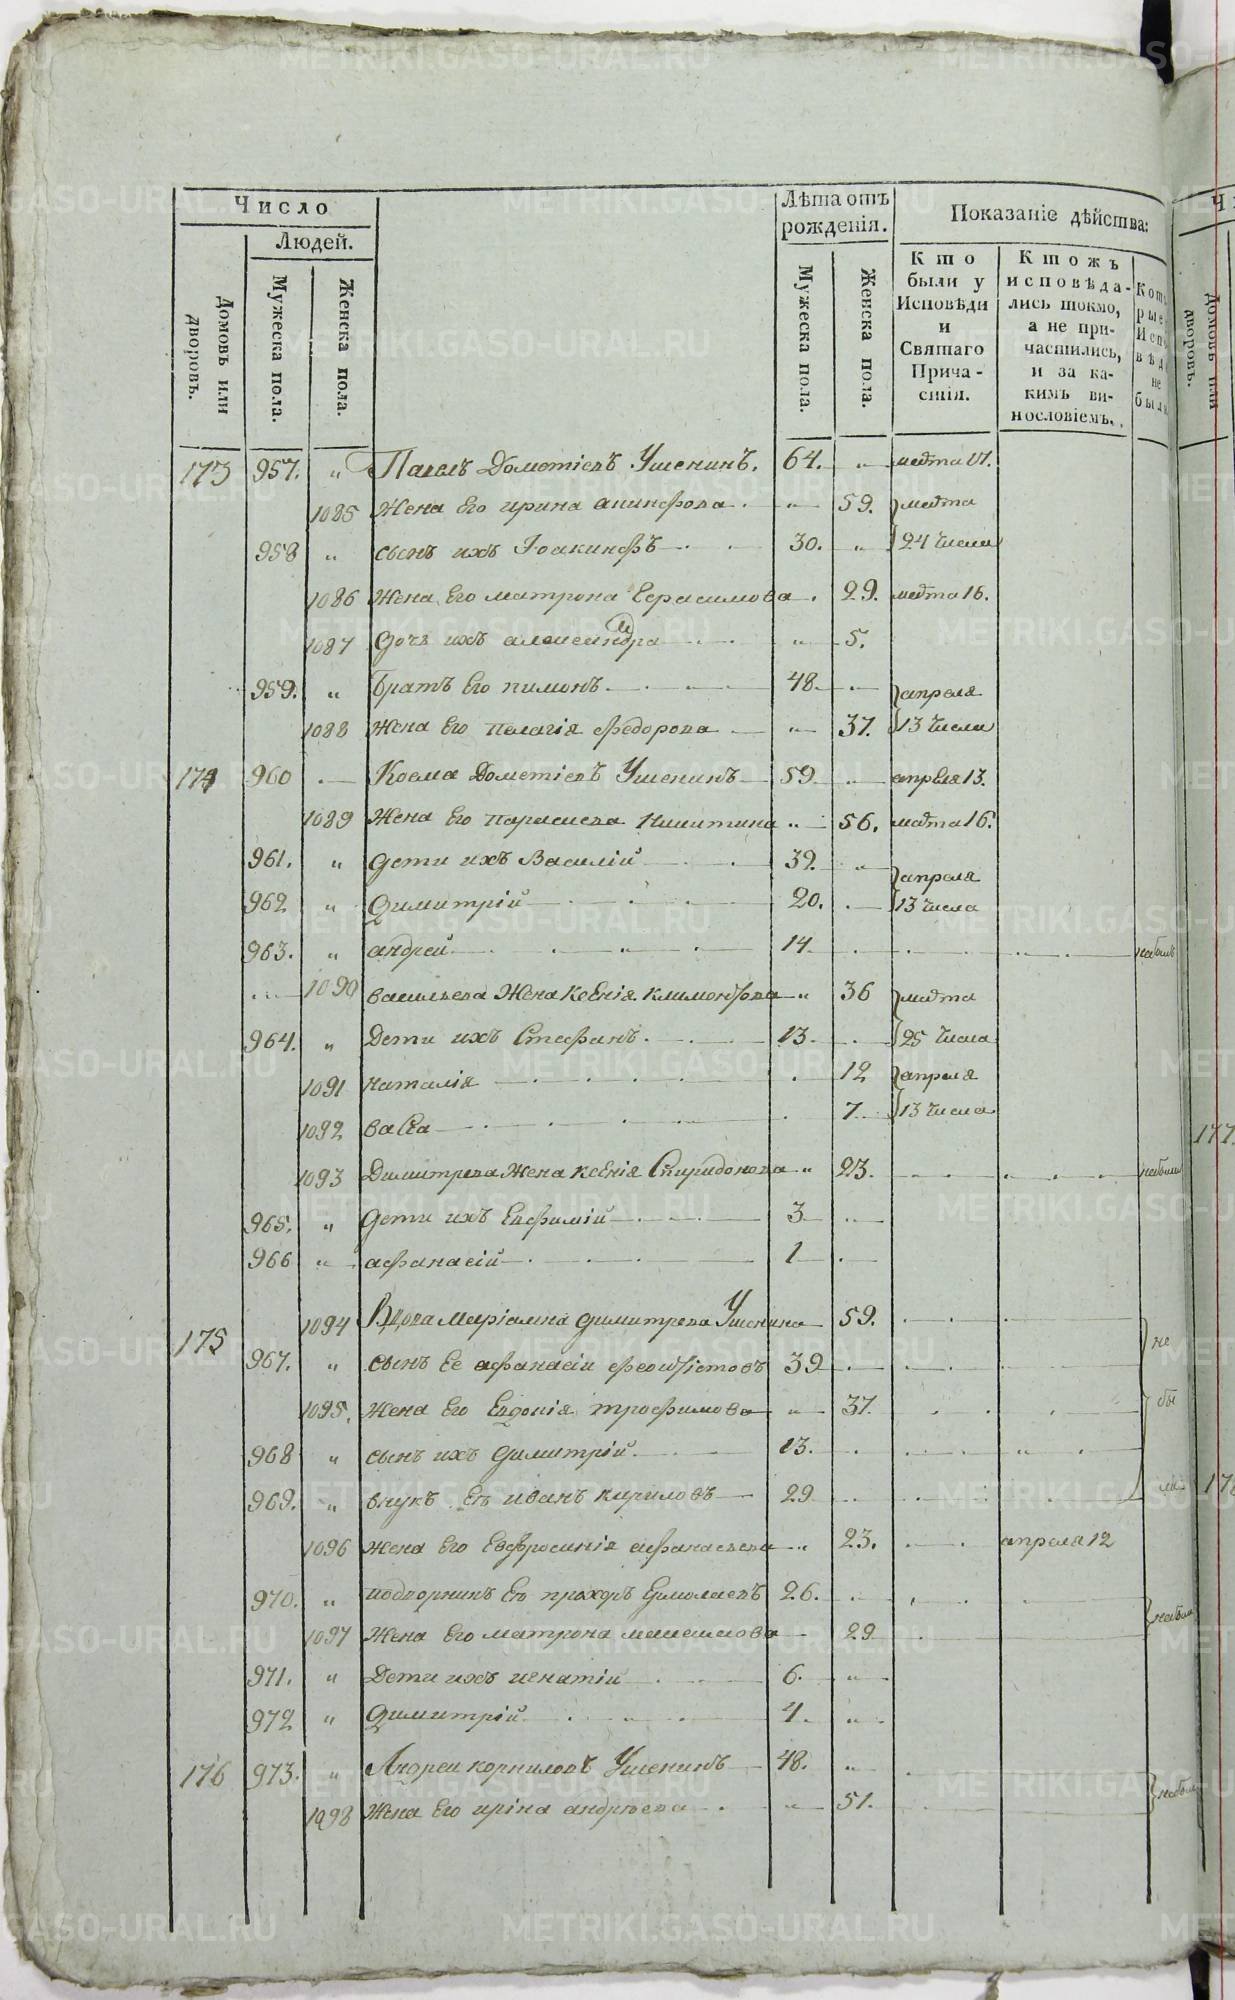 Число
Людей.
Домовъ или дворовъ.
Мужеска пола.
Женска пола.
Лѣта отъ рожденія.
Мужеска пола.
Женска пола.
Показаніе дѣйства:
Кто были у Исповѣди и Святаго Прича-стія.
Ктожъ исповѣда-лись токмо, а не при-частились, и за ка-кимъ ви-нословіемъ.
173 957. " Павелъ Дометіевъ Ушенинъ. 64. " марта 17.
1085 Жена Его ирина акинфова . " 59. марта
958 " сынъ ихъ Іоакинфъ 30. " 24 числа
1086 Жена Его матрона Герасимова . 29. марта 16.
1087 дочь ихъ александра " 5.
959. " братъ Его пимонъ 48. апреля
1088 жена Его пелагія федорова " 37. 13 числа
174 960 Косма Дометіевъ Ушенинъ 59 апреля 13.
1089 Жена Его параскева никитина " 56. марта 16.
961. " дети ихъ Василій 39. " апреля
962 " димитрій 20. 13 числа
963. " андрей 14 небылъ
1090 васильева Жена ксенія климонтова " 36 марта
964. " Дети ихъ Стефанъ. 13. 25 числа
1091 наталія 12 апреля
1092 васса 7. 13 числа
1093 Димитрева Жена ксенія Спиридонова " 23. небыла
965. " дети ихъ Евфимій 3
966 " афанасій 1
175 1094 Вдова маріамна димитрева Ушенина 59. не
967. " сынъ Ее афанасіи феоктістовъ 39
1095. Жена Его Евдокія трофимова " 37. бы
968 " сынъ ихъ димитрій 13.
969. " внукъ Ея иванъ кириловъ 29 ли
1096 жена Его Евфросинія афанасьева " 23. апреля 12
970. " подворникъ Ея прохоръ Ермолаевъ 26.
1097 Жена Его матрона 29 небыли
971. " Дети ихъ игнатій 6. "
972 " димитрій 4. "
176 973. " Андреи корниловъ Ушенинъ 48. "
1098 Жена Его иріна андрѣева " 51. небыли
METRIKI.GASO-URAL.RU